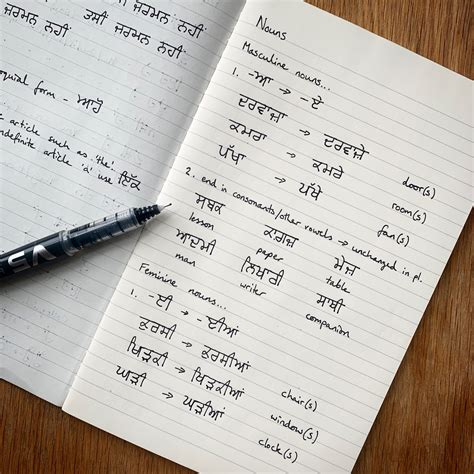 ਜਰਮਨ ਨਹੀਂ
ਜਰਮਨ ਨਹੀਂ
form - ਆਹੋ
article such as 'the'
article 'a' use ਇੱਕ
Nouns
Masculine nouns...
1. -ਆ → -ਏ
ਦਰਵਾਜ਼ਾ → ਦਰਵਾਜ਼ੇ door(s)
ਕਮਰਾ → ਕਮਰੇ room(s)
ਪੱਖਾ → ਪੱਖੇ fan(s)
2. end in consonants/other vowels → unchanged in pl.
ਸਬਕ ਕਾਗਜ਼ ਮੇਜ਼
lesson paper table
ਆਦਮੀ ਲਿਖਾਰੀ ਸਾਥੀ
man writer companion
Feminine nouns...
1. -ਈ → -ਈਆਂ
ਕੁਰਸੀ → ਕੁਰਸੀਆਂ chair(s)
ਖਿੜਕੀ → ਖਿੜਕੀਆਂ window(s)
ਘੜੀ → ਘੜੀਆਂ clock(s)